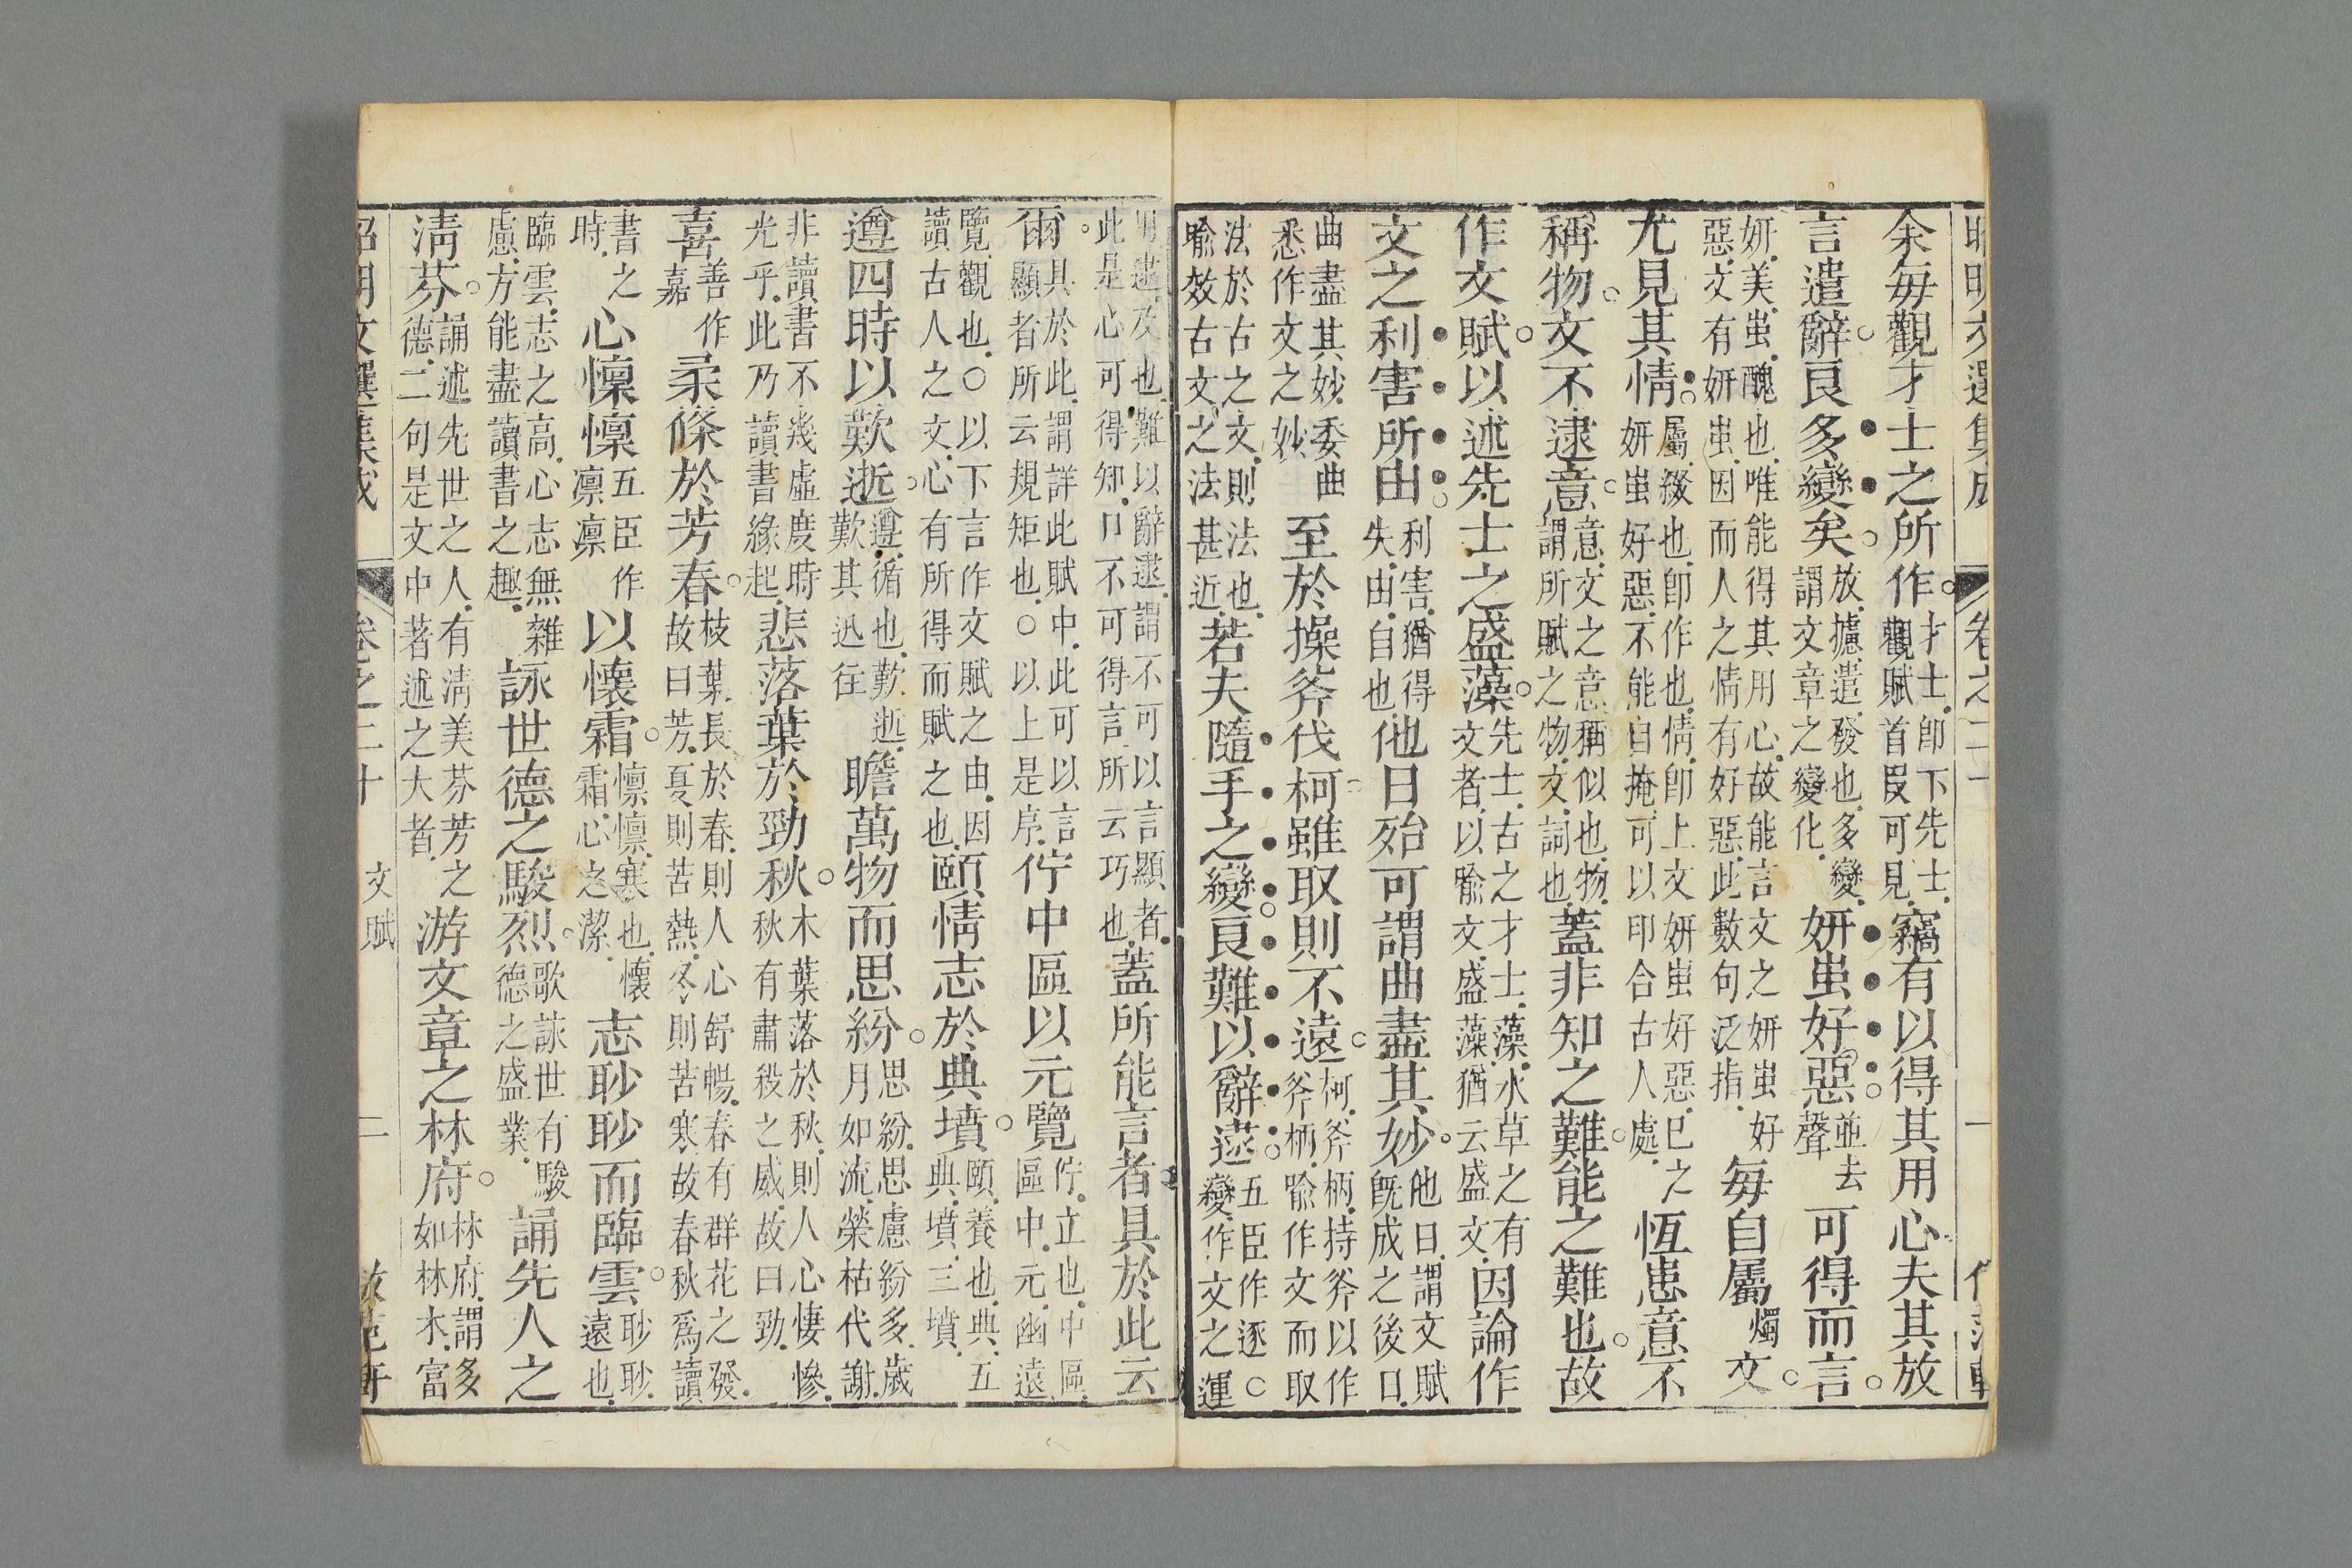 昭明文選集成 卷之二十 一
余每觀才士之所作才士卽下先士觀賦首段可見竊有以得其用心夫其放
言遣辭良多變矣放攄遣發也多變謂文章之變化妍蚩好惡並去聲可得而言
妍美蚩醜也唯能得其用心故能言文之妍蚩好惡文有妍蚩因而人之情有好惡此數句泛指每自屬燭文
尤見其情屬綴也卽作也情卽上文妍蚩好惡已之妍蚩好惡不能自掩可以印合古人處恆患意不
稱物文不逮意意文之意稱似也物謂所賦之物文詞也蓋非知之難能之難也故
作文賦以述先士之盛藻先士古之才士藻水草之有文者以喻文盛藻猶云盛文因論作
文之利害所由利害猶得失由自也他日殆可謂曲盡其妙他日謂文賦旣成之後口
曲盡其妙委曲悉作文之妙至於操斧伐柯雖取則不遠柯斧柄持斧以作斧柄喻作文而取
法於古之文則法也喻效古文之法甚近若夫隨手之變良難以辭逮五臣作逐○變作文之運
用逮及也難以辭逮謂不可以言顯者此是心可得知口不可得言所云巧也蓋所能言者具於此云
爾具於此謂詳此賦中此可以言顯者所云規矩也○以上是序佇中區以元覽佇立也中區區中元幽遠
覽觀也○以下言作文賦之由因讀古人之文心有所得而賦之也頤情志於典墳頤養也典五典墳三墳
遵四時以歎逝遵循也歎逝歎其迅往瞻萬物而思紛思紛思慮紛多歲月如流榮枯代謝
非讀書不幾虛度時光乎此乃讀書緣起悲落葉於勁秋木葉落於秋則人心悽慘秋有肅殺之威故曰勁
喜善作嘉柔條於芳春枝葉長於春則人心舒暢春有群花之發故曰芳夏則苦熱冬則苦寒故春秋爲讀
書之時心懍懍五臣作凛凛以懷霜懍懍寒也懷霜心之潔志眇眇而臨雲眇眇遠也
臨雲志之高心志無雜慮方能盡讀書之趣詠世德之駿烈歌詠世有駿德之盛業誦先人之
淸芬誦述先世之人有淸美芬芳之德二句是文中著述之大者游文章之林府林府謂多如林木富
昭明文選集成 卷之二十 文賦 二